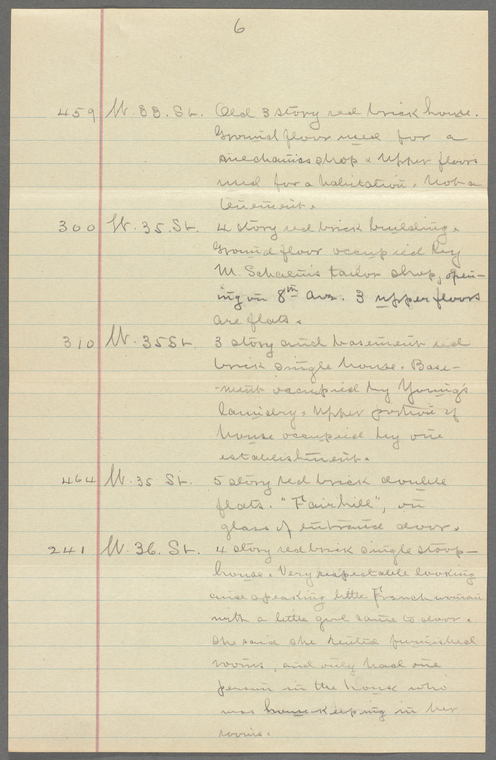 6
459 W. 33. St. Old 3 story red brick house.
Ground floor used for a
mechanics shop & upper floors
used for a habitation. Not a
tenement.
300 W. 35. St. 4 story red brick building.
Ground floor occupied by
M. tailor shop, open-
ing on 8th Ave. 3 upper floors
are flats.
310 W. 35 St 3 story and basement red
brick single house. Base-
-ment occupied by Young's
laundry. Upper portion of
house occupied by one
establishment.
464 W. 35 St. 5 story red brick double
flats. "Fairhill", on
glass of entrance door.
241 W. 36. St. 4 story red brick single stoop-
house. Very respectable looking
and speaking little French woman
with a little girl came to door.
She said she rented furnished
rooms, and only had one
person in the house who
was house-keeping in her
rooms.